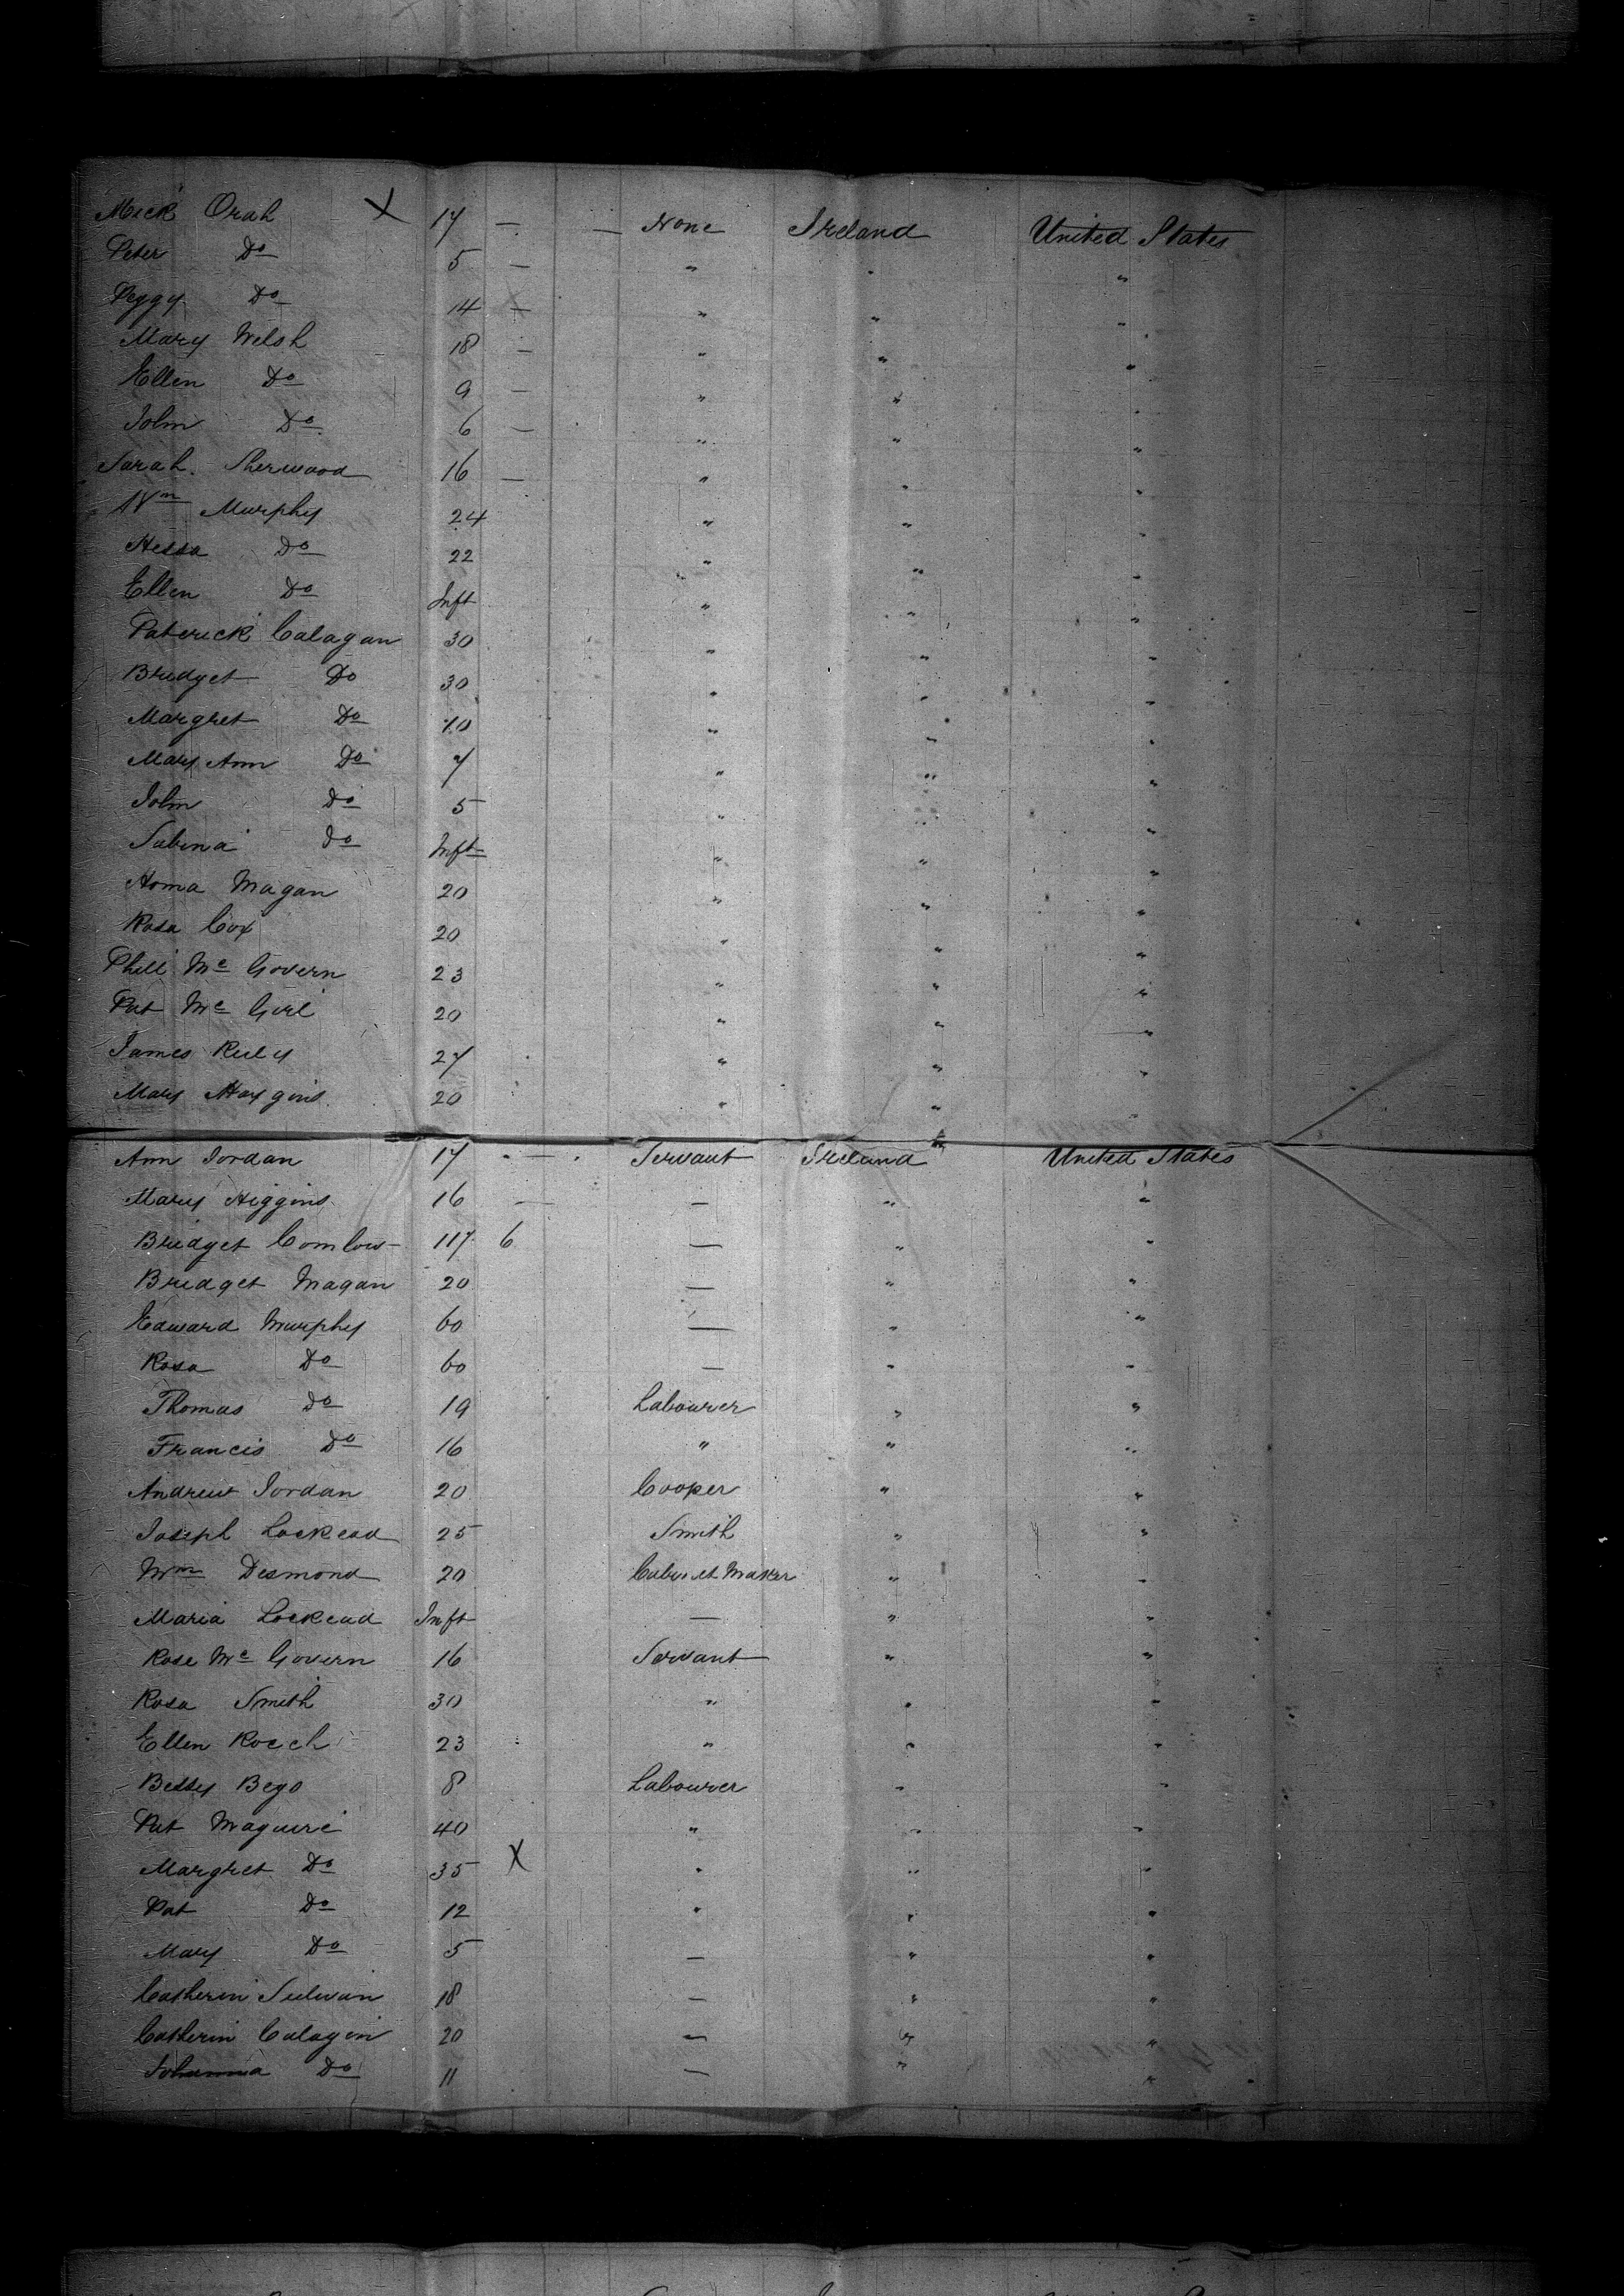 Mick Orah X 17 — — None Ireland United States
Peter Do 5 — " " "
Peggy Do 14 — " " "
Mary Welsh 18 — " " "
Ellen Do 9 — " " "
John Do 6 — " " "
Sarah. Sherwood 16 — " " "
Wm Murphy 24 " " "
Hessa Do 22 " " "
Ellen Do Inft " " "
Paterick Calagan 30 " " "
Bridget Do 30 " " "
Margret Do 10 " " "
Mary Ann Do 7 " " "
John Do 5 " " "
Sabina Do Inft " " "
Magan 20 " " "
Rosa Cox 20 " " "
Phill Mc Govern 23 " " "
Pat Mc Girl 20 " " "
James Rily 27 " " "
Mary 20 " " "
Ann Jordan 17 — Servant Ireland United States
Mary Higgins 16 — — " "
Bridget 117 6 — " "
Bridget Magan 20 — " "
Edward Murphy 60 — " "
Rosa Do 60 — " "
Thomas Do 19 Labourer " "
Francis Do 16 " " "
Andrew Jordan 20 Cooper " "
Joseph Lockead 25 Smith " "
Wm Desmond 20 Cabinet Maker " "
Maria Lockead Inft — " "
Rose Mc Govern 16 Servant " "
Rosa Smith 30 " " "
Ellen Roech 23 " " "
Bessy Bego 8 Labourer " "
Pat Maguire 40 " " "
Margret Do 35 X " " "
Pat Do 12 " " "
Mary Do 5 — " "
Catherin Sulivan 18 — " "
Catherin Calagin 20 — " "
Johanna Do 11 — " "